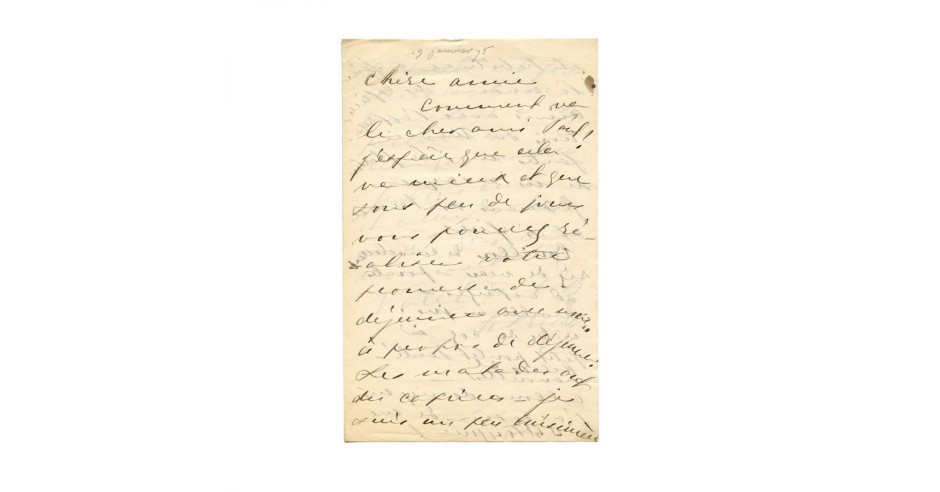 19 janvier 95
Chère amie
Comment va
le cher ami Paul?
j'espère que cela
va mieux et que
sous peu de jours
vous pourrez ré-
aliser votre
promesse de
déjeuner avec nous
à propos de déjeuner
Les malades ont
des caprices - je
suis un peu cuisinière